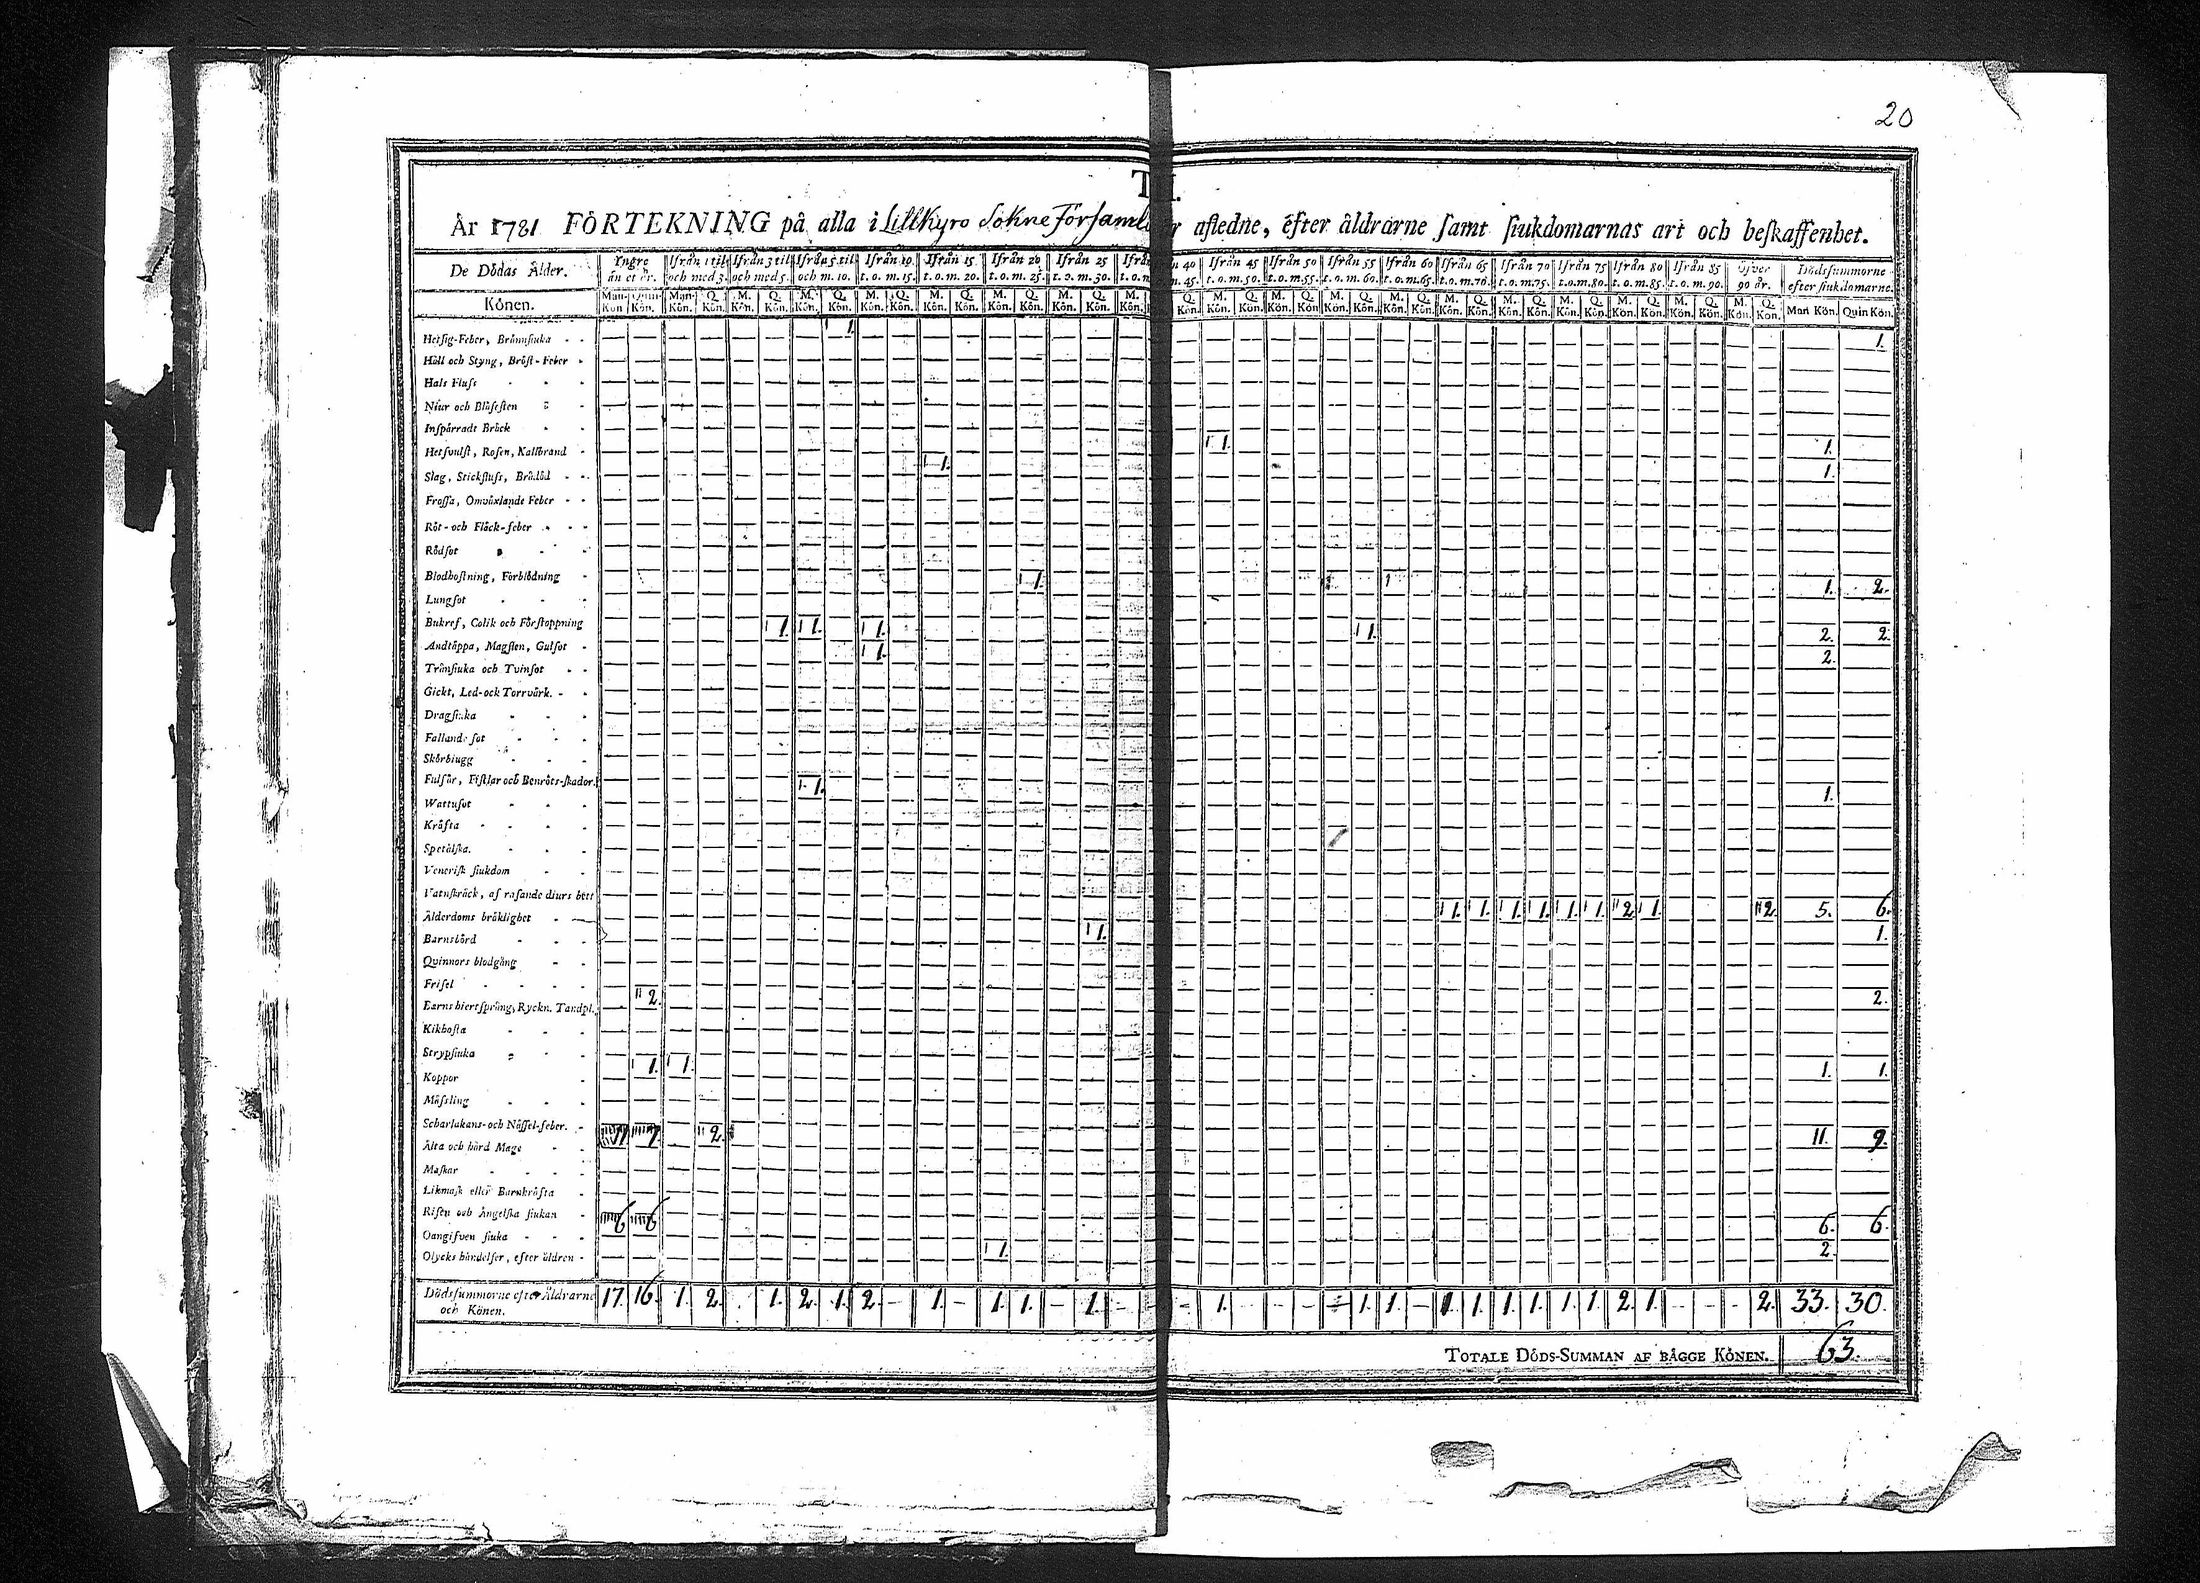 20
T
År 1781 FÖRTEKNING på alla i Lillkyro Sokne Församl r afledne, efter åldrarne samt siukdomarnas art och beskaffenhet.
De Dödas Ålder. Yngre än et år. Ifrån 1 til och med 3. Ifrån 3 til och med 5. Ifrån 5 til och m. 10. Ifrån 10 t. o. m. 15. Ifrån 15 t. o. m. 20. Ifrån 20 t. o. m. 25. Ifrån 25 t. o. m. 30. Ifrån 45 t. o. m. 50. Ifrån 50 t. o. m. 55. Ifrån 55 t. o. m. 60. Ifrån 60 t. o. m. 65. Ifrån 65 t. o. m. 70. Ifrån 70 t. o. m. 75. Ifrån 75 t. o. m. 80. Ifrån 80 t. o. m. 85. Ifrån 85 t. o. m. 90. Öfver 90 år. Dödssummorne efter siukdomarne.
Könen. Man-Kön Quin-Kön. Man-Kön. Q. Kön. M. Kön. Q. Kön. M. Kön. Q. Kön. M. Kön. Q. Kön. M. Kön. Q. Kön. M. Kön. Q. Kön. M. Kön. Q. Kön. M. Kön. Q. Kön. M. Kön. Q. Kön. M. Kön. Q. Kön. M. Kön. Q. Kön. M. Kön. Q. Kön. M. Kön. Q. Kön. M. Kön. Q. Kön. M. Kön. Q. Kön. M. Kön. Q. Kön. M. Kön. Q. Kön. M. Kön. Q. Kön. Man Kön. Quin Kön.
Hetsig-Feber, Brännsiuka 1. 1.
Håll och Styng, Bröst-Feber
Hals Fluss
Niur och Blåsesten
Inspärradt Bråck
Hetsvulst, Rosen, Kallbrand 1. 1.
Slag, Stickfluss, Brådöd 1. 1.
Frossa, Omväxlande Feber
Röt- och Fläck-feber
Rödsot
Blodhostning, Förblödning
Lungsot 1. 1. 2.
Bukref, Colik och Förstoppning
Andtäppa, Magsten, Gulsot 1. 1. 1. 1. 2. 2.
Trånsiuka och Tvinsot 1. 2.
Gickt, Led-ock Torrvärk.
Dragsiuka
Fallande sot
Skörbiugg
Fulsår, Fistlar och Benröts-skador.
Wattusot 1. 1.
Kräfta
Spetälska.
Venerisk siukdom
Vatnskräck, af rasande diurs bett
Ålderdoms bräklighet 1. 1. 1. 1. 1. 1. 2 1. 2. 5. 6.
Barnsbörd 1. 1.
Quinnors blodgång
Frisel
Barns hiertspräng, Ryckn. Tandpl. 2. 2.
Kikhosta
Strypsiuka
Koppor 1. 1. 1. 1.
Mässling
Scharlakans-och Nässel-feber.
Älta och hård Mage 7. 2. 11. 9.
Maskar
Likmask eller Barnkräfta
Risen och Ängelska siukan
Oangifven siuka 6 6 6. 6.
Olycks händelser, efter äldren 1. 2.
Dödssummorne efter Åldrarne och Könen. 17. 16. 1. 2. 1. 2. 1. 2. – 1. – 1. 1. – 1. – – 1. – – – – 1. 1. – 1. 1. 1. 1. 1. 1. 2. 1. – – – 2. 33. 30.
TOTALE DÖDS-SUMMAN AF BÄGGE KÖNEN. 63.